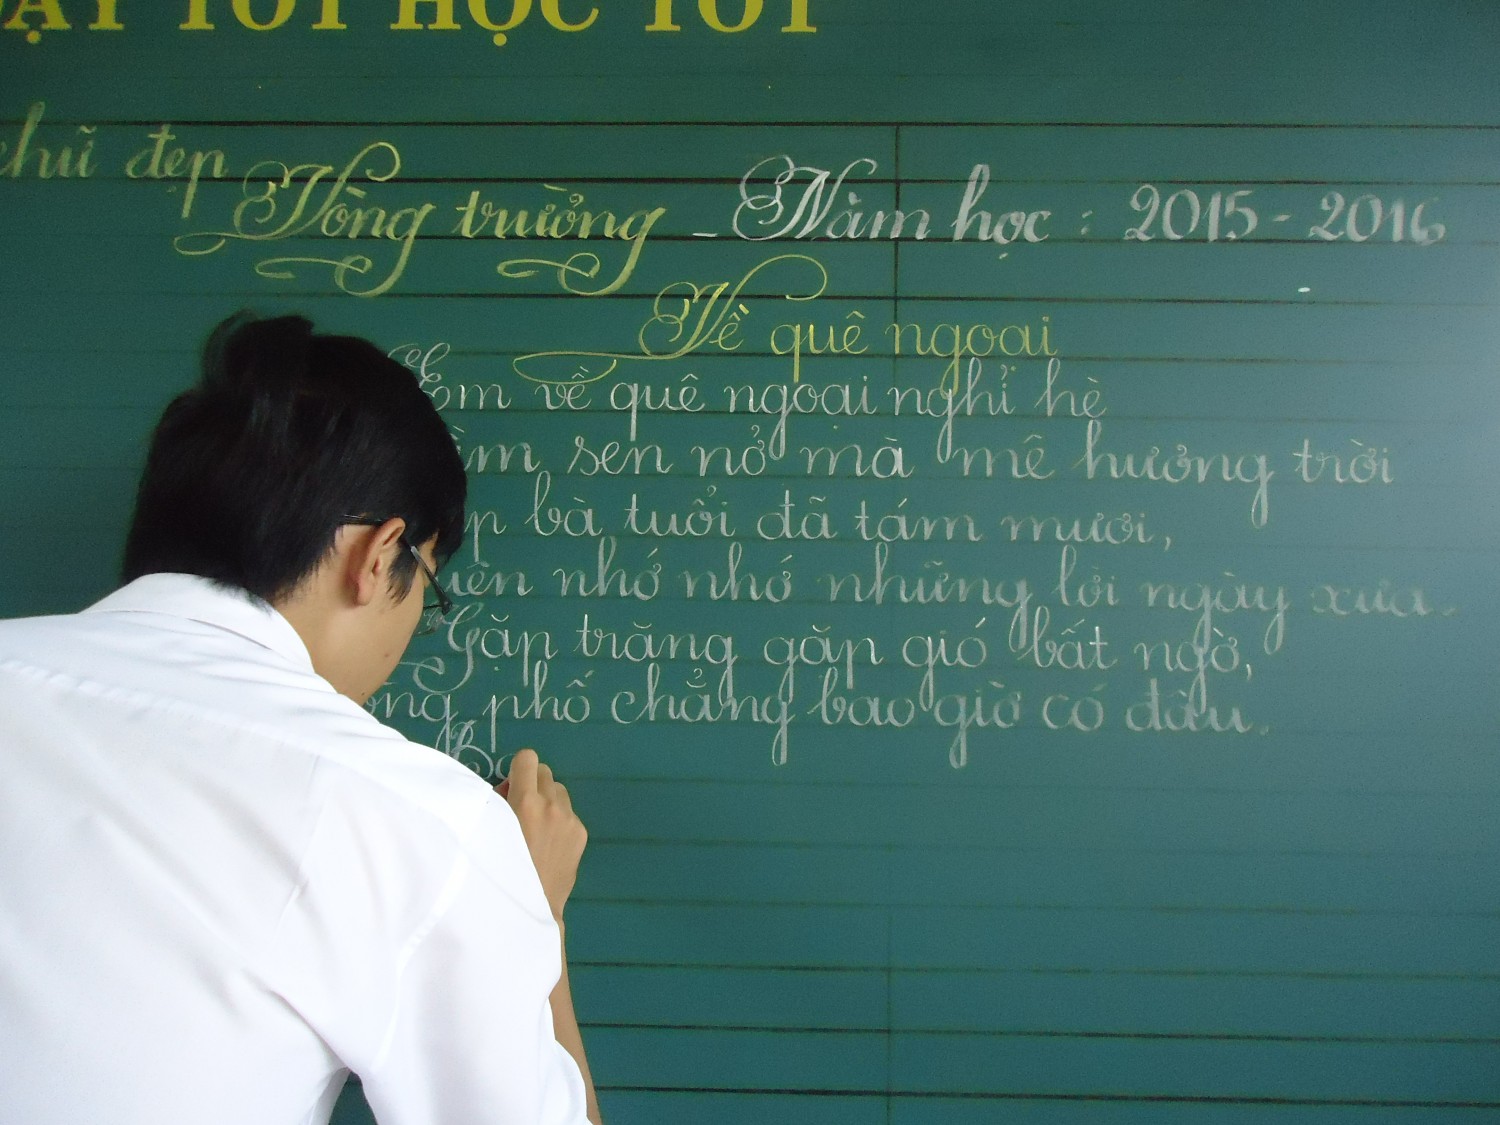 DẠY TỐT HỌC TỐT
chữ đẹp
Vòng trường - Năm học : 2015 - 2016
Về quê ngoại
Em về quê ngoại nghỉ hè
sen nở mà mê hương trời
bà tuổi đã tám mươi,
nhớ nhớ những lời ngày xưa.
Gặp trăng gặp gió bất ngờ,
phố chẳng bao giờ có đâu.